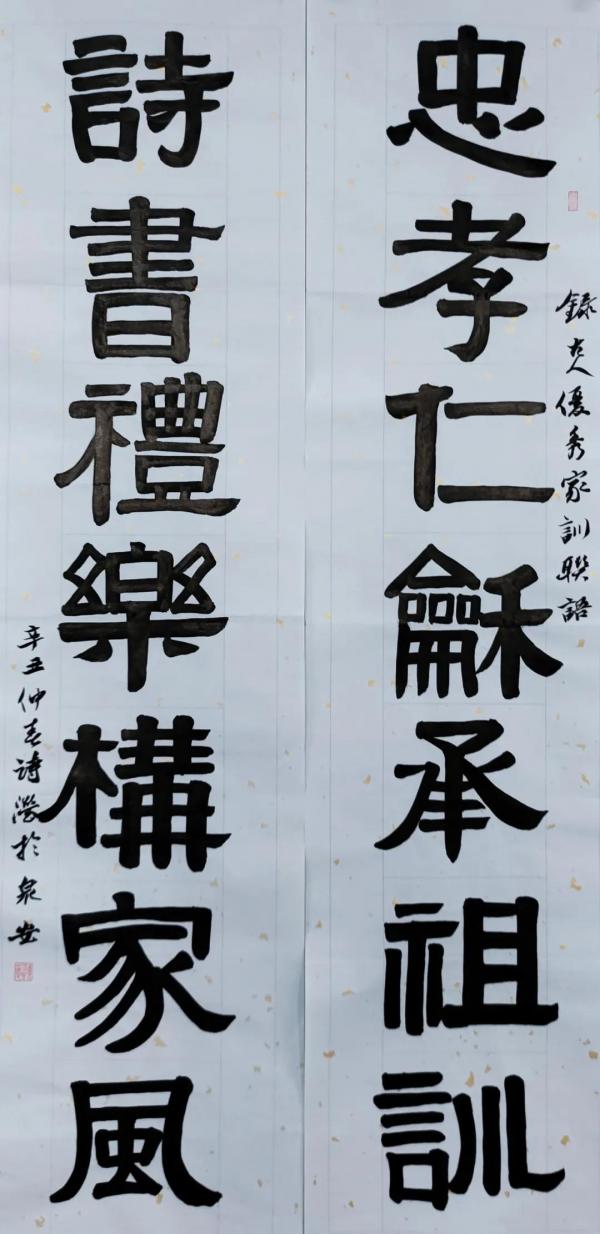 錄古人優秀家訓聯語
忠孝仁龢承祖訓
詩書禮樂構家風
辛丑仲春詩灣於泉安